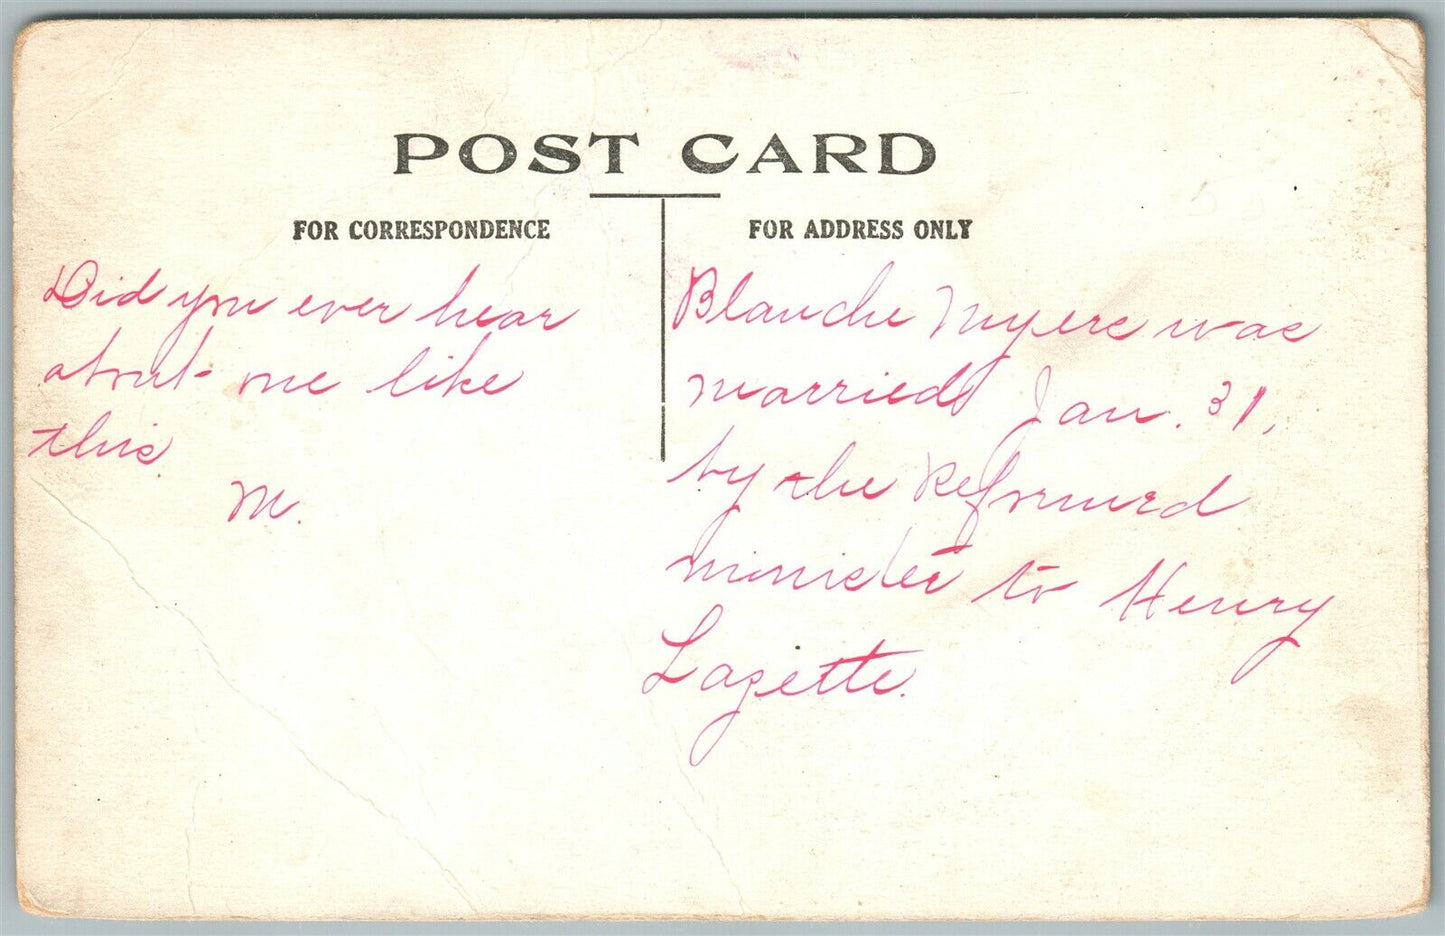 POST CARD
FOR CORRESPONDENCE
Did you ever hear
about me like
this
M.
FOR ADDRESS ONLY
Blanche Myers was
married Jan. 31,
by the Reformed
minister to Henry
Lazette.